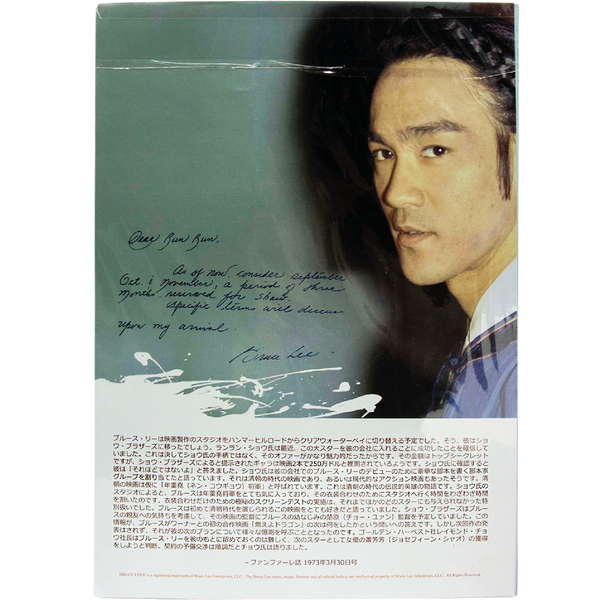 Dear Run Run,
As of now, consider september
Oct. & November, a period of three
months reserved for Shaw.
Specific terms will discuss
upon my arrival.
Bruce Lee
ブルース・リーは映画製作のスタジオをハンマーヒルロードからクリアウォーターベイに切り替える予定でした。そう、彼はショウ
・ブラザーズに移ったでしょう。ランラン・ショウ氏は最近、この大スターを彼の会社に入れることに成功したことを確信して
いました。これは決してショウ氏の手柄ではなく、そのオファーがかなり魅力的だったからです。その金額はトップシークレット
ですが、ショウ・ブラザーズによると提示されたギャラは映画2本で250万ドルと推測されているようです。ショウ氏に確認すると
彼は「それほどではないよ」と答えました。ショウ氏は彼の会社でのブルース・リーのデビューのために豪華な脚本を書く脚本家
グループを割り当てたと語っています。それは清朝の時代の映画であり、あるいは現代的なアクション映画もあったそうです。清
朝の映画は仮に「年羹堯（ネン・コウギョウ）将軍」と呼ばれています。これは清朝の時代の伝説的英雄の物語です。ショウ氏の
スタジオによると、ブルースは年羹堯将軍をとても気に入っており、その衣装合わせのためにスタジオへ行く時間をわざわざ時間
を割いたのです。衣装合わせだけのための極秘のスクリーンテストの実施は、それまでほかのどのスターにも与えられなかった特
別扱いでした。ブルースは初めて清朝時代を演じられるこの映画をとても好きだと語っていました。ショウ・ブラザーズはブルー
スの親友への気持ちを考慮して、その映画の監督にブルースの幼なじみの楚原（チョー・ユアン）監督を予定していました。この
情報が、ブルースがワーナーとの初の合作映画「燃えよドラゴン」の次は何をしたかという問いへの答えです。しかし次回作の発
表はされず、それが彼の次のプランについて様々な憶測を呼ぶこととなったのです。ゴールデン・ハーベスト社レイモンド・チョ
ウ社長はブルース・リーを彼のもとに留めておくのは難しく、次のスターとして女優の蕭芳芳（ジョセフィーン・シャオ）の獲得
をしようと判断、契約の予備交渉は順調だとチョウ氏は語りました。
－ファンファーレ誌 1973年3月30日号
BRUCE LEE® is a registered trademark of Bruce Lee Enterprises, LLC. The Bruce Lee name, image, likeness and all related indicia are intellectual property of Bruce Lee Enterprises, LLC. All Rights Reserved.